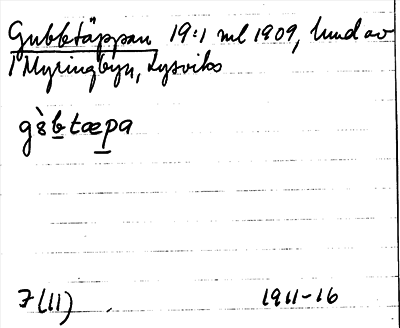 Gubbtäppan 19:1 ml 1909, lund av
1 Myringbyn, Lysviks
gs̀b̲tæp̲a
7(11) 1911-16